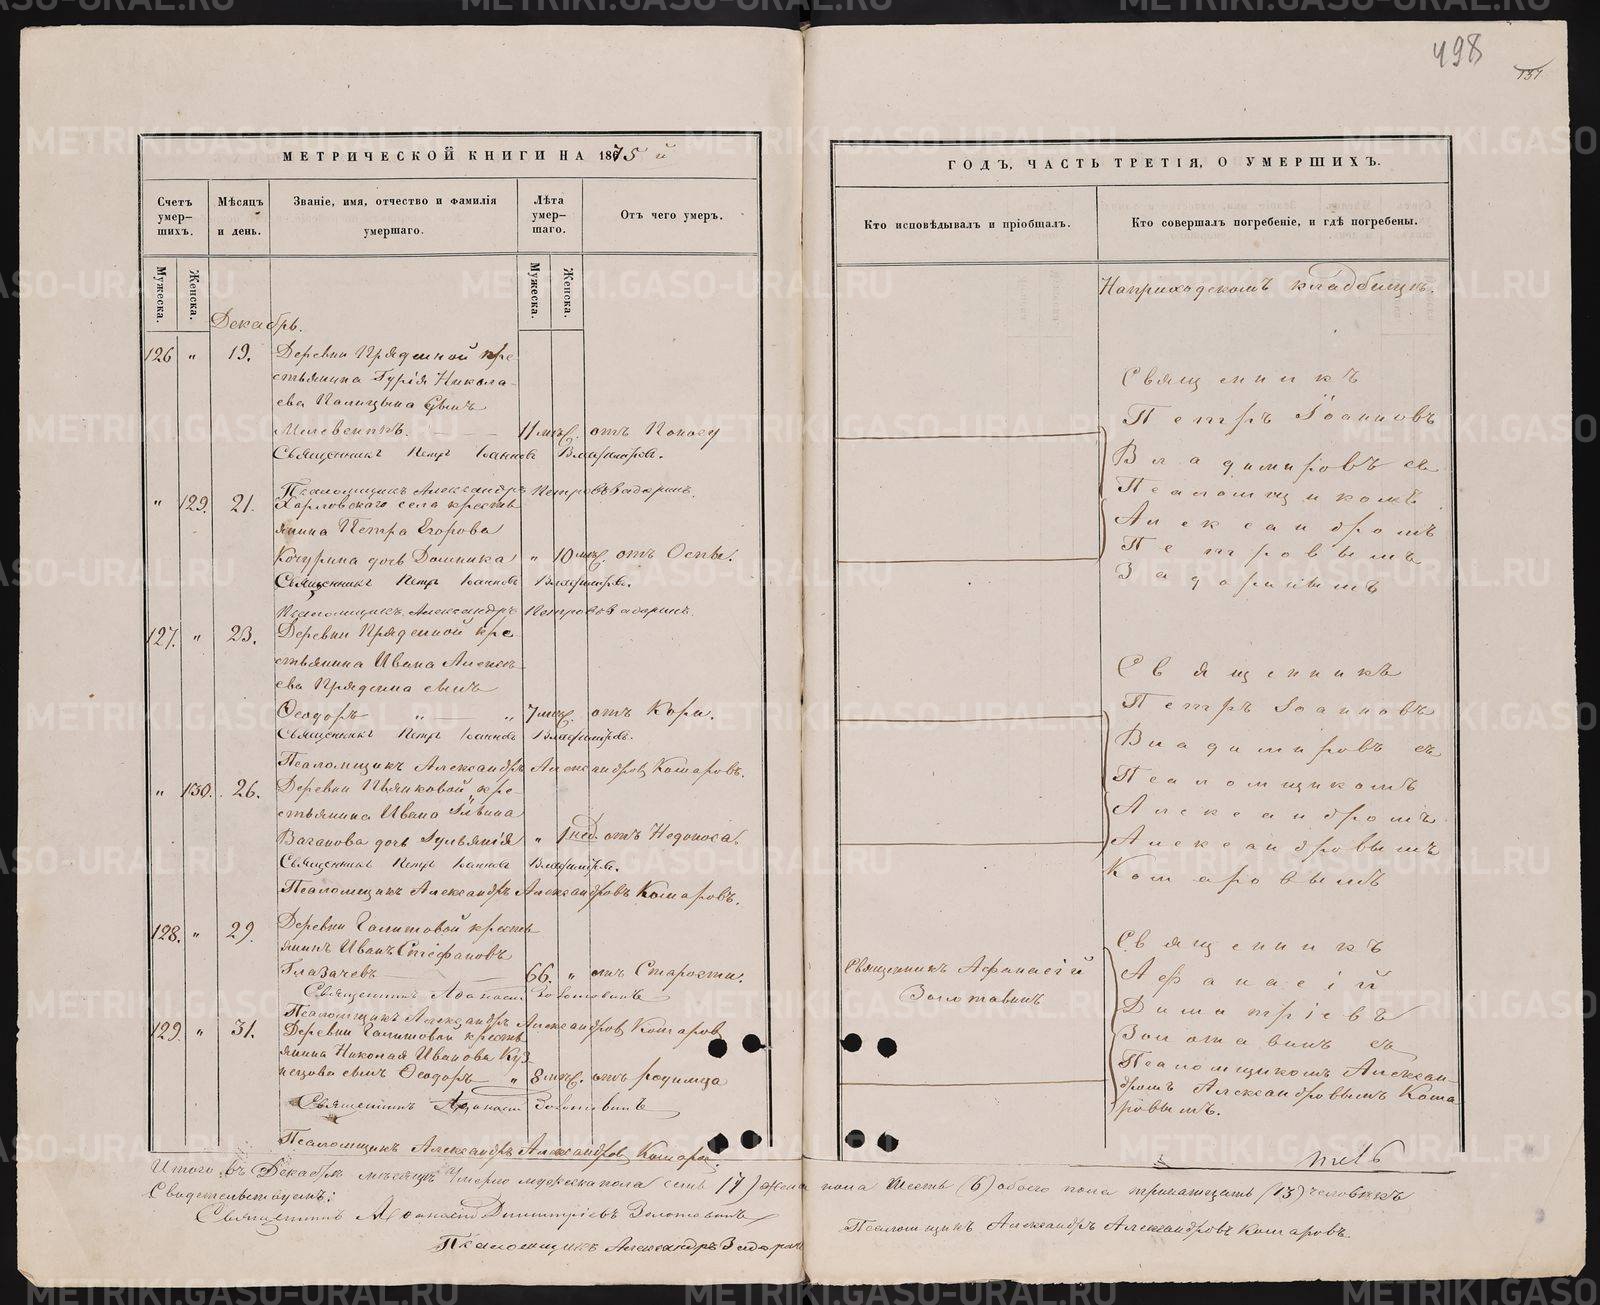 498
137
МЕТРИЧЕСКОЙ КНИГИ НА 1875 й
Счетъ умер-шихъ.
Мѣсяцъ и день.
Званіе, имя, отчество и фамилія умершаго.
Лѣта умер-шаго.
Отъ чего умеръ.
Мужеска.
Женска.
Мужеска.
Женска.
Декабрь.
126 " 19. Деревни Пряденной кре-
стьянина Гурія Никола-
ева Палицына сынъ
11 мѣс. отъ Поносу
Священникъ Петръ Іанновъ Владиміровъ.
Псаломщикъ Александръ Петровъ Задоринъ.
" 129. 21. Харловскаго села кресть
янина Петра Егорова
Кочурина дочь Домника " 10 мѣс. отъ Оспы.
Священникъ Петръ Іанновъ Владиміровъ.
Псаломщикъ Александръ Петровъ Задоринъ.
127. " 23. Деревни Пряденной кре-
стьянина Ивана Алексѣ-
ева Пряденна сынъ
Ѳеодоръ " " 7 мѣс. отъ Кори.
Священникъ Петръ Іанновъ Владиміровъ.
Псаломщикъ Александръ Александровъ Комаровъ.
" 130. 26. Деревни Пьянковой кре-
стьянина Ивана
Ваганова дочь Іуліянія " 1 нед. отъ Недоноса
Священникъ Петръ Іанновъ Владиміровъ.
Псаломщикъ Александръ Александровъ Комаровъ.
128. " 29. Деревни Галишовой кресть
янинъ Иванъ Стефановъ
Глазачевъ 66. " отъ Старости.
Священникъ Аѳанасій Золотавинъ
Псаломщикъ Александръ Александровъ Комаровъ
129. " 31. Деревни Галишовой кресть
янина Николая Иванова Куз
нецова сынъ Ѳеодоръ " 8 мѣс. отъ родимца
Священникъ Аѳанасій Золотавинъ
Псаломщикъ Александръ Александровъ Комаровъ
ГОДЪ, ЧАСТЬ ТРЕТІЯ, О УМЕРШИХЪ.
Кто исповѣдывалъ и пріобщалъ.
Кто совершалъ погребеніе, и гдѣ погребены.
На приходскомъ кладбищѣ.
Священникъ
Петръ Іоанновъ
Владиміровъ съ
Псаломщикомъ
Александромъ
Петровымъ
Задоринымъ
Священникъ
Петръ Іоанновъ
Владиміровъ съ
Псаломщикомъ
Александромъ
Александровымъ
Комаровымъ
Священникъ Аѳанасій
Золотавинъ
Священникъ
Аѳанасій
Димитріевъ
Золотавинъ съ
Псаломщикомъ Алексан-
дромъ Александровымъ Кома
ровымъ.
Итого въ Декабрѣ мѣсяцѣ умерло мужеска пола семь (7) женска пола шесть (6) обоего пола тринатцать (13) человѣкъ
Свидетельствуемъ:
Священникъ Аѳанасій Димитріевъ Золотавинъ
Псаломщикъ Александръ Задоринъ
Псаломщикъ Александръ Александровъ Комаровъ.
METRIKI.GASO-URAL.RU